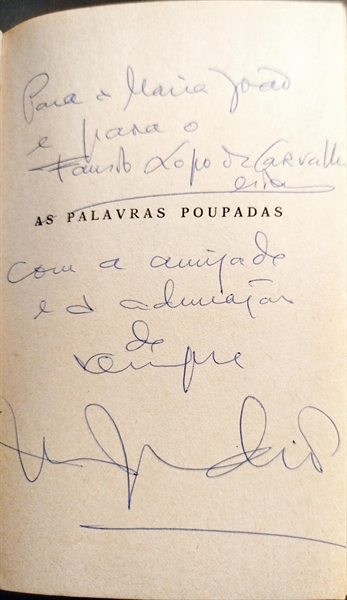 Para a Maria João
e para o
Fausto Lopo de Carvalho
estas
AS PALAVRAS POUPADAS
com a amizade
e a admiração
de
sempre